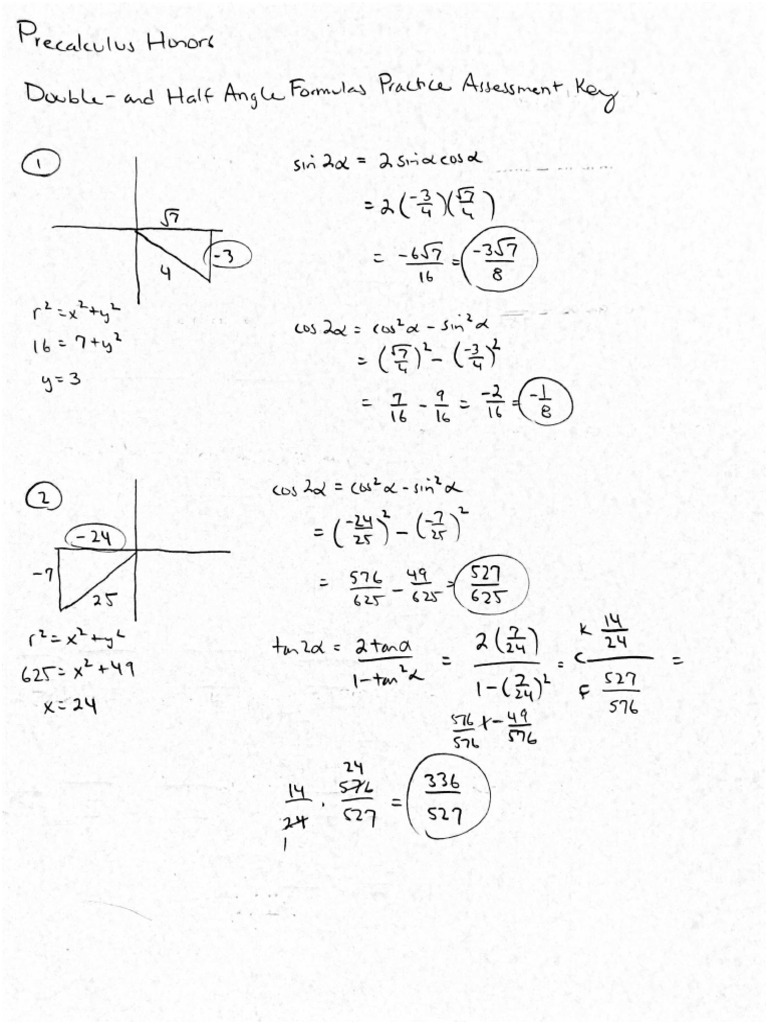 Precalculus Honors
Double- and Half Angle Formulas Practice Assessment, Key
①
√7
-3
4
r² = x² + y²
16 = 7 + y²
y = 3
sin 2α = 2 sin α cos α
= 2(-3/4)(√7/4)
= -6√7/16 = -3√7/8
cos 2α = cos²α - sin²α
= (√7/4)² - (-3/4)²
= 7/16 - 9/16 = -2/16 = -1/8
②
-24
-7
25
r² = x² + y²
625 = x² + 49
x = 24
cos 2α = cos²α - sin²α
= (-24/25)² - (-7/25)²
= 576/625 - 49/625 = 527/625
tan 2α = 2 tan α / 1 - tan²α = 2(7/24) / 1 - (7/24)² = K 14/24 C F 527/576 =
576/576 + - 49/576
14/24 · 576/527 = 336/527
24
1